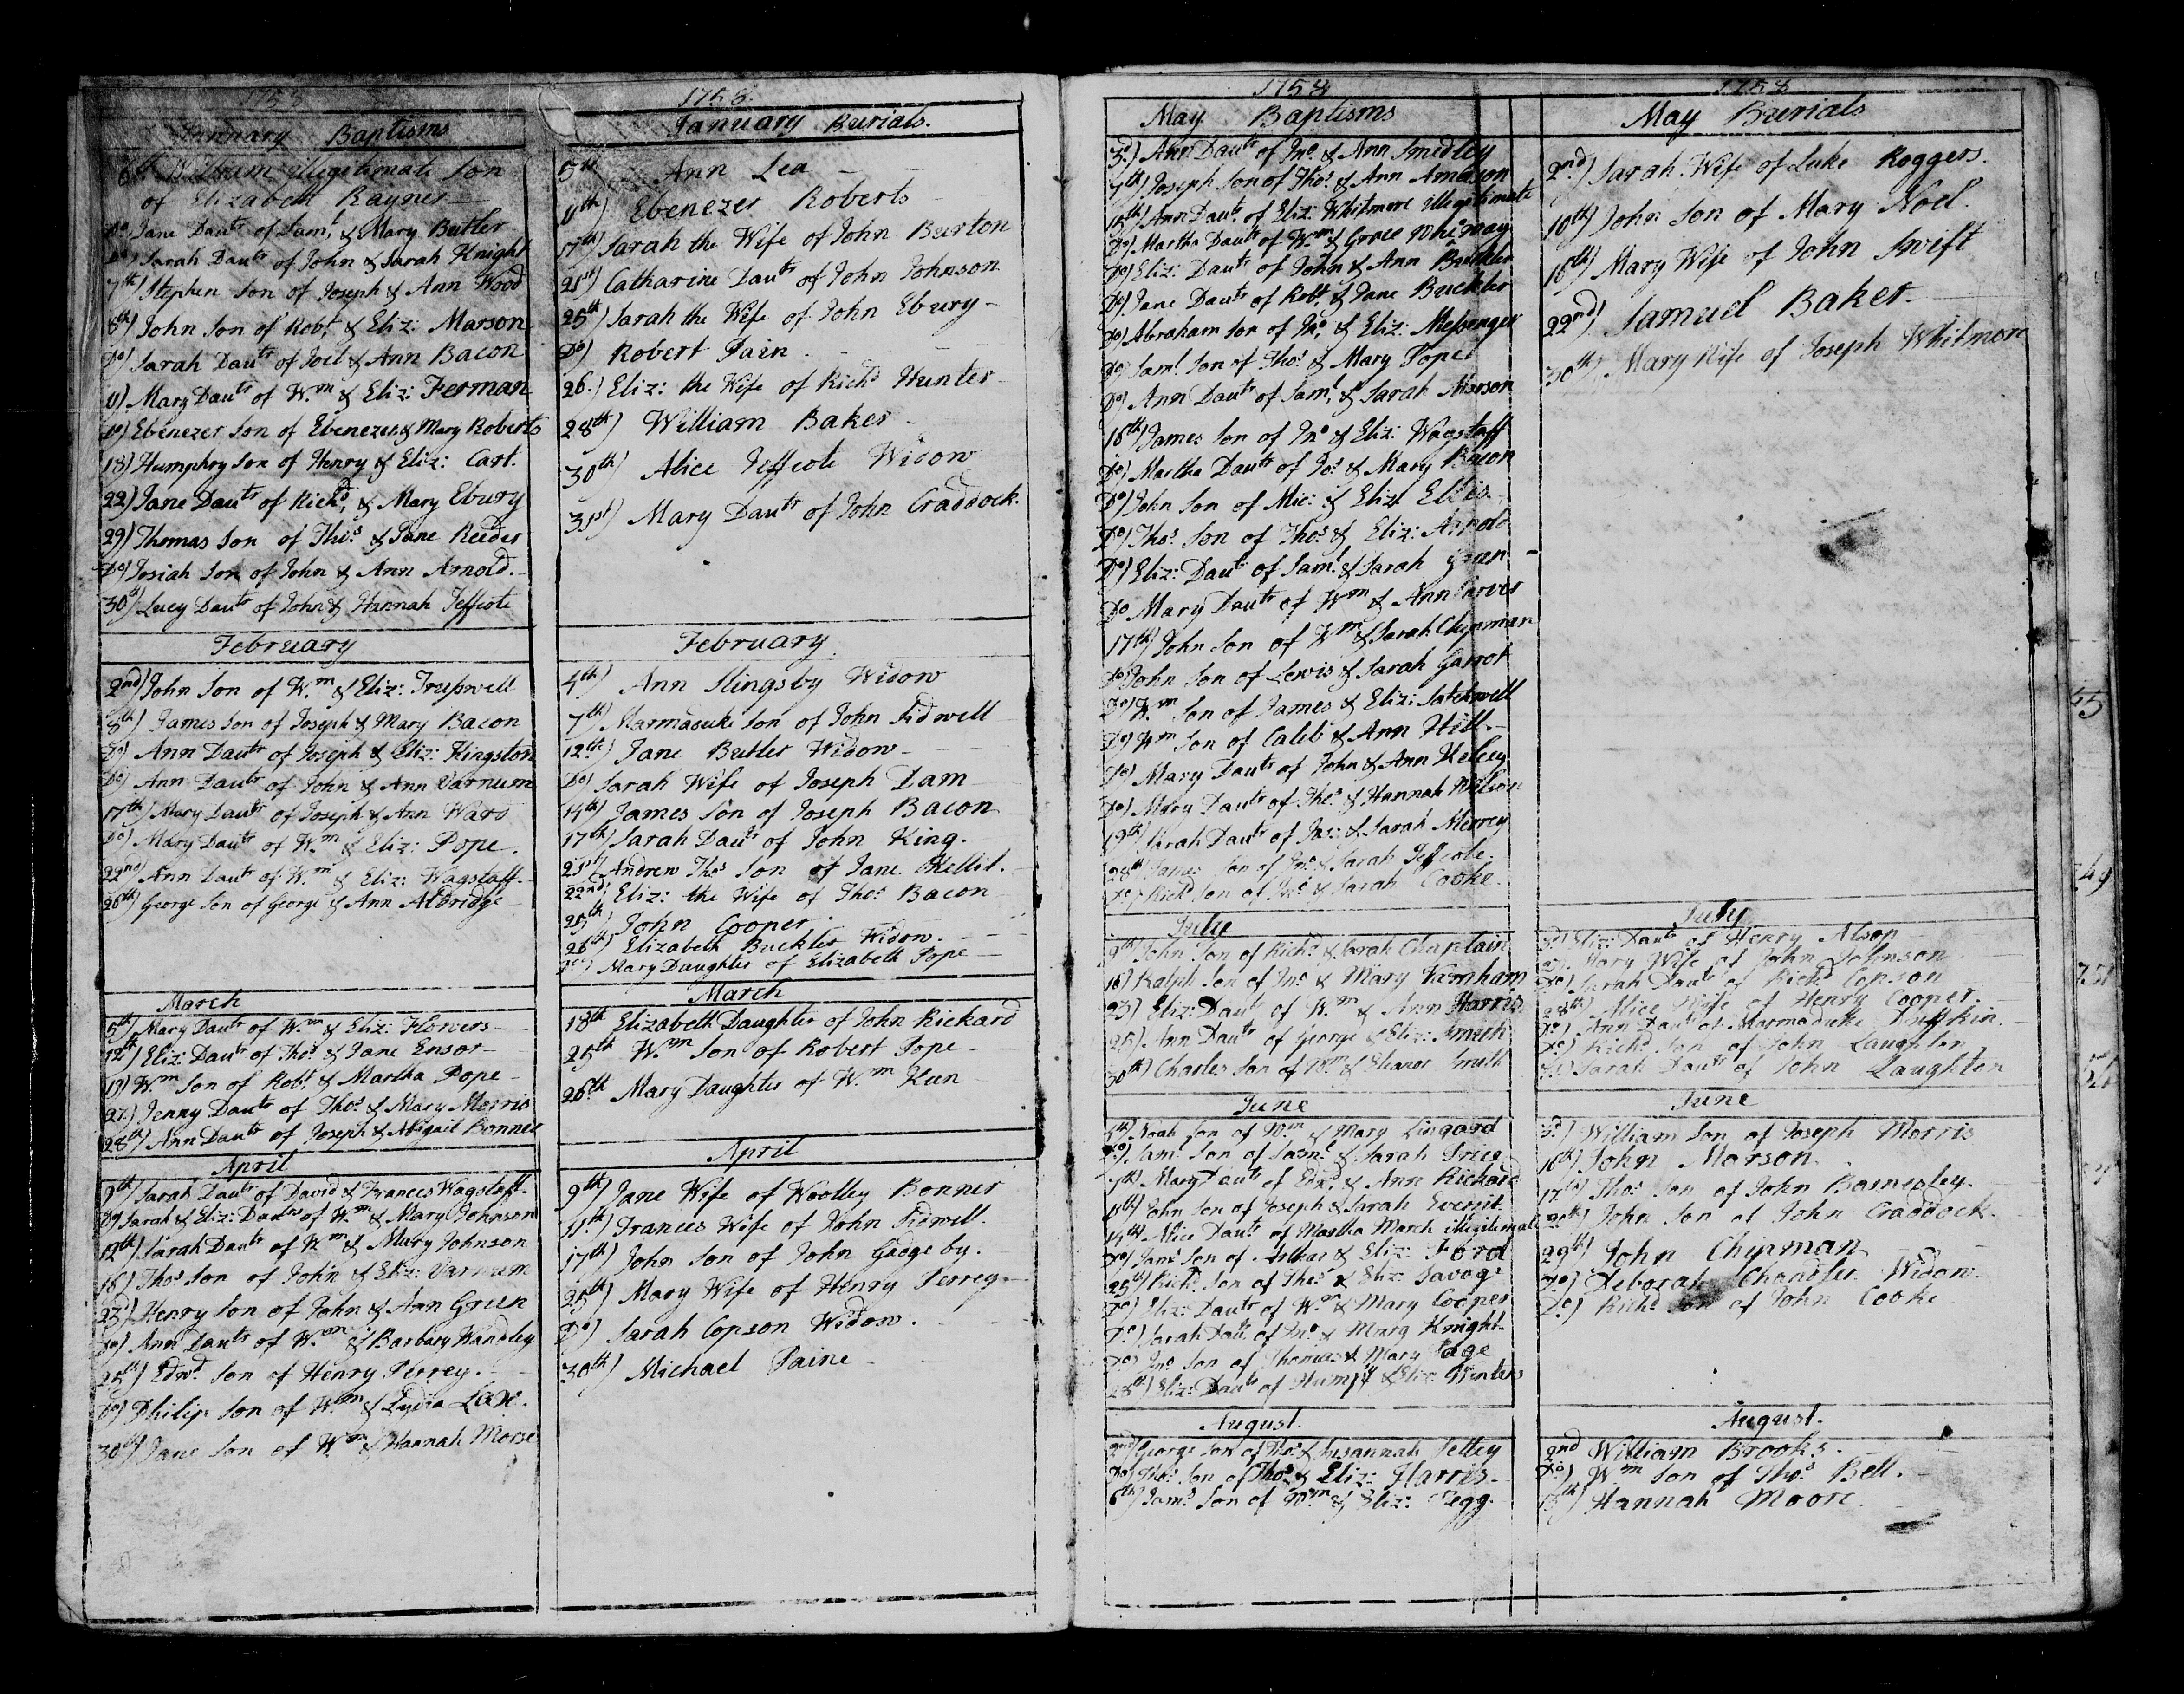 1758
January Baptisms
6th William illegitimate Son
of Elizabeth Rayner
Do) Jane Dautr of Saml. & Mary Butler
Do) Sarah Dautr of John & Sarah Knight
7th) Stephen Son of Joseph & Ann Wood
8th) John Son of Robt. & Eliz: Marson
Do) Sarah Dautr of Joel & Ann Bacon
11) Mary Dautr of Wm & Eliz: Ferman
Do) Ebenezer Son of Ebenezer & Mary Roberts
18) Humphry Son of Henry & Eliz: Cart.
22) Jane Dautr of Richd. & Mary Ebury
29) Thomas Son of Thos. & Jane Reeder
Do) Josiah Son of John & Ann Arnold.
30th) Lucy Dautr of John & Hannah Jeffcote
February
2nd) John Son of Wm & Eliz: Trusswell
8th) James Son of Joseph & Mary Bacon
Do) Ann Dautr of Joseph & Eliz: Kingston
Do) Ann Dautr of John & Ann Varnum
17th) Mary Dautr of Joseph & Ann Ward
Do) Mary Dautr of Wm & Eliz: Pope.
22nd) Ann Dautr of Wm & Eliz: Wagstaff.
26th) George Son of George & Ann Aldridge
March
5th) Mary Dautr of Wm & Eliz: Flowers
12th) Eliz: Dautr of Thos. & Jane Ensor
13) Wm Son of Robt. & Martha Pope
27.) Jenny Dautr of Thos. & Mary Morris
28th) Ann Dautr of Joseph & Abigail Bonner
April
9th) Sarah Dautr of David & Frances Wagstaff.
Do) Sarah & Eliz: Dautrs of Wm & Mary Johnson
12th) Sarah Dautr of Wm & Mary Johnson
16) Thos Son of John & Eliz: Varnum
23d) Henry Son of John & Ann Green
Do) Ann Dautr of Wm & Barbary Wandley
25th) Edwd. Son of Henry Perrey.
Do) Philip Son of Wm & Lydia Lax.
30th) Jane Son of Wm & Hannah Morse
1758.
January Burials.
5th Ann Lea
11th) Ebenezer Roberts
17th) Sarah the Wife of John Burton
21st) Catharine Daut of John Johnson
25th) Sarah the Wife of John Ebury
Do) Robert Pain.
26.) Eliz: the Wife of Richd Hunter
28th) William Baker
30th) Alice Jeffcote Widow
31st) Mary Dautr of John Craddock.
February.
4th) Ann Slingsby Widow
7th) Marmaduke Son of John Tidwell
12th) Jane Butler Widow
Do) Sarah Wife of Joseph Dam
14th) James Son of Joseph Bacon
17th) Sarah Dautr of John King.
21st) Andrew Thos Son of Jane Kellit.
22nd) Eliz: the Wife of Thos. Bacon
25th) John Cooper
26th) Elizabeth Buckler Widow.
Do) Mary Daughter of Elizabeth Pope
March
18th Elizabeth Daughter of John Rickard
25th Wm Son of Robert Pope
26th Mary Daughter of Wm Kun
April
9th) Jane Wife of Woolley Bonner
11th) Frances Wife of John Tidwell.
17th) John Son of John Gadgeby.
25th) Mary Wife of Henry Perrey
Do) Sarah Copson Widow.
30th) Michael Paine
1758
May Baptisms
3d.) Ann Dautr of Jno. & Ann Smedley
7th) Joseph Son of Thos. & Ann Ameson
15th) Ann Dautr. of Eliz: Whitmore illegitimate
Do) Martha Dautr of Wm & Grace
Do) Eliz: Dautr of John & Ann Buckler
Do) Jane Dautr of Robt. & Jane Buckler
Do) Abraham Son of Jno. & Eliz: Messenger
Do) Saml. Son of Thos. & Mary Pope
Do) Ann Dautr of Saml. & Sarah Marson
16th) James Son of Jno & Eliz: Wagstaff
Do) Martha Dautr of Jos. & Mary Bacon
Do) John Son of Mic: & Eliz Ellis
Do) Thos. Son of Thos. & Eliz: Arnold
Do) Eliz: Dautr of Saml. & Sarah Green
Do Mary Dautr of Wm & Ann Carver
17th) John Son of Wm & Sarah Chipman
Do) John Son of Lewis & Sarah Garrot
Do) Wm Son of James & Eliz: Satchwell
Do) Wm Son of Caleb & Ann Hill.
Do) Mary Dautr of John & Ann Kelsey
Do) Mary Dautr of Thos. & Hannah Wilson
19th) Sarah Dautr of Jas: & Sarah Merrey
28th) James Son of Jno. & Sarah Jeffcote.
Do) Richd Son of Jno. & Sarah Cooke.
July
9th) John Son of Richd & Sarah Chaplain
16) Ralph Son of Jno & Mary Varnham
23) Eliz: Dautr of Wm & Ann Harris
25) Ann Dautr of George & Eliz: Smith
30th) Charles Son of Wm & Eleanor Smith
June
Noah Son of Wm & Mary Lingard
Do) Saml. Son of Saml. & Sarah
Mary Dautr of Edwd & Ann Rickard
11th) John Son of Joseph & Sarah Everit.
14th) Alice Dautr of Martha March illegitimate
Do) Jams Son of & Eliz: Ford
25th) Richd. Son of Thos. & Eliz: Savage
Do) Eliz: Dautr of Wm & Mary Cooper
Do) Sarah Dautr of Jno. & Mary Knight
Do) Jno Son of Thomas & Mary Page
28th) Eliz: Dautr of Humpy & Eliz: Winters
August.
2nd) George Son of Thos. & Susannah Jelley
Do) Thos. Son of Thos. & Eliz: Harris
6th) Jams Son of Wm & Eliz: Tegg.
1758
May Burials
2nd) Sarah Wife of Luke Roggers.
10th) John Son of Mary Noel.
18th) Mary Wife of John Swift
22nd) Samuel Baker.
30th) Mary Wife of Joseph Whitmore
July
Eliz: Dautr of Henry Alsop
Mary Wife of John Johnson
Do) Sarah Dautr of Richd Copson
28th) Alice Wife of Henry Cooper.
Do) Ann Dautr of Marmaduke
Do) Richd Son of John Laughton
Sarah Dautr of John Laughton
June
3d) William Son of Joseph Morris
16th) John Marson
17th) Thos. Son of John Barnesley.
20th) John Son of John Craddock.
29th) John Chipman
Do) Deborah Chandler Widow.
Do) Richd Son of John Cooke
August.
2nd William Brooks.
Do) Wm Son of Thos. Bell.
13th) Hannah Moore.